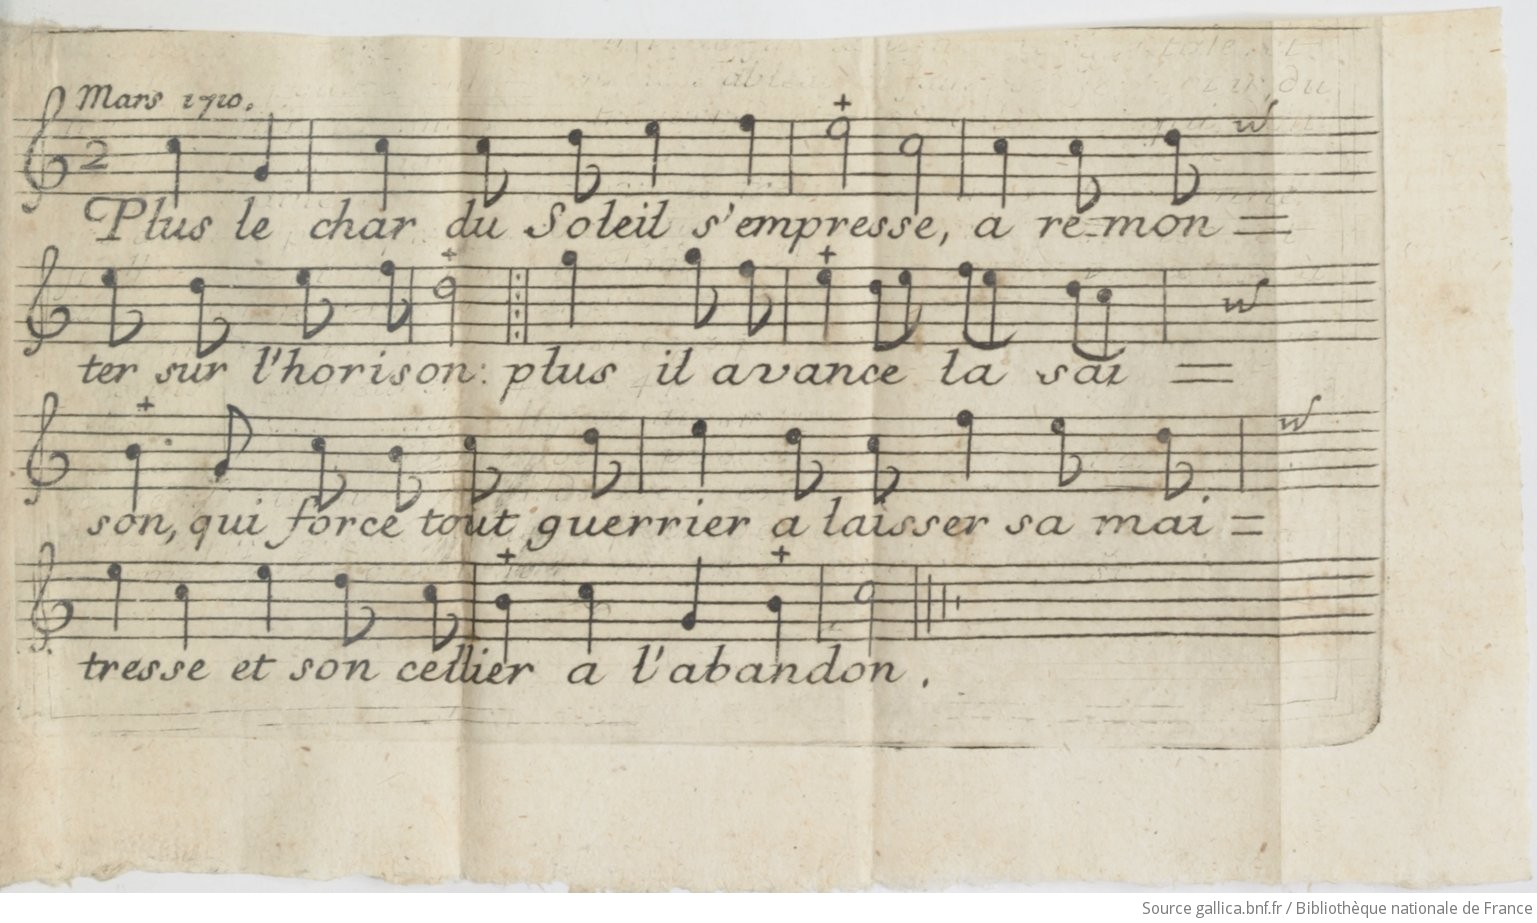 Mars 1710.
2
Plus le char du Soleil s'empresse, a re-mon =
ter sur l'horison: plus il avance la sai =
son, qui force tout guerrier a laisser sa mai =
tresse et son cellier a l'abandon.
Source gallica.bnf.fr / Bibliothèque nationale de France